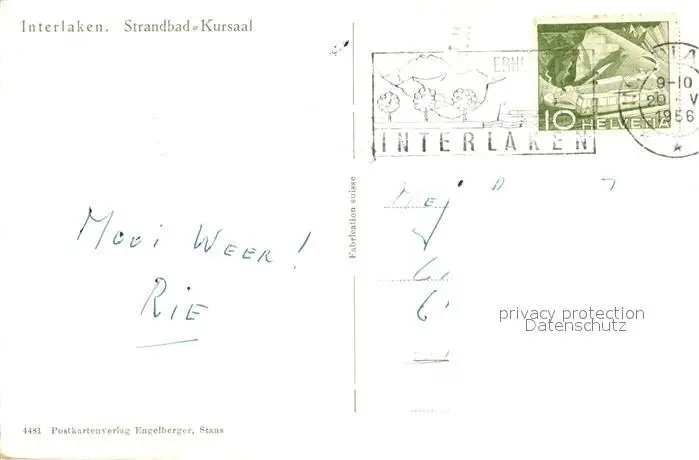 Interlaken. Strandbad-Kursaal
INTERLAKEN
10 HELVETIA
9-10
20. V
1956
Fabrication suisse
Mooi WEER!
RIE
privacy protection
Datenschutz
4481 Postkartenverlag Engelberger, Stans